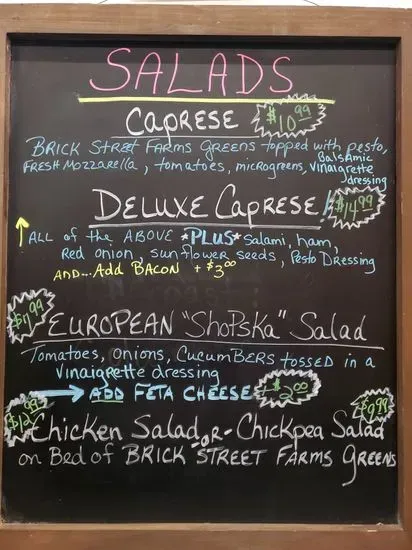 SALADS
CAPRESE $10.99
BRICK Street FARMS GREENS topped with pesto,
FRESH MOZZARELLA, tomatoes, microgreens, BALSAMIC VINAIGRETTE
dressing
DELUXE CAPRESE $14.99
ALL of the ABOVE *PLUS* salami, ham,
Red onion, sunflower seeds, Pesto Dressing
AND...Add BACON + $3.00
EUROPEAN "ShoPsKa" Salad
Tomatoes, onions, CucumBERS tossed in a
Vinaigrette dressing
→ ADD FETA CHEESE $2.00
Chicken Salad -OR- Chickpea Salad $9.99
on Bed of BRICK STREET FARMS GREENS